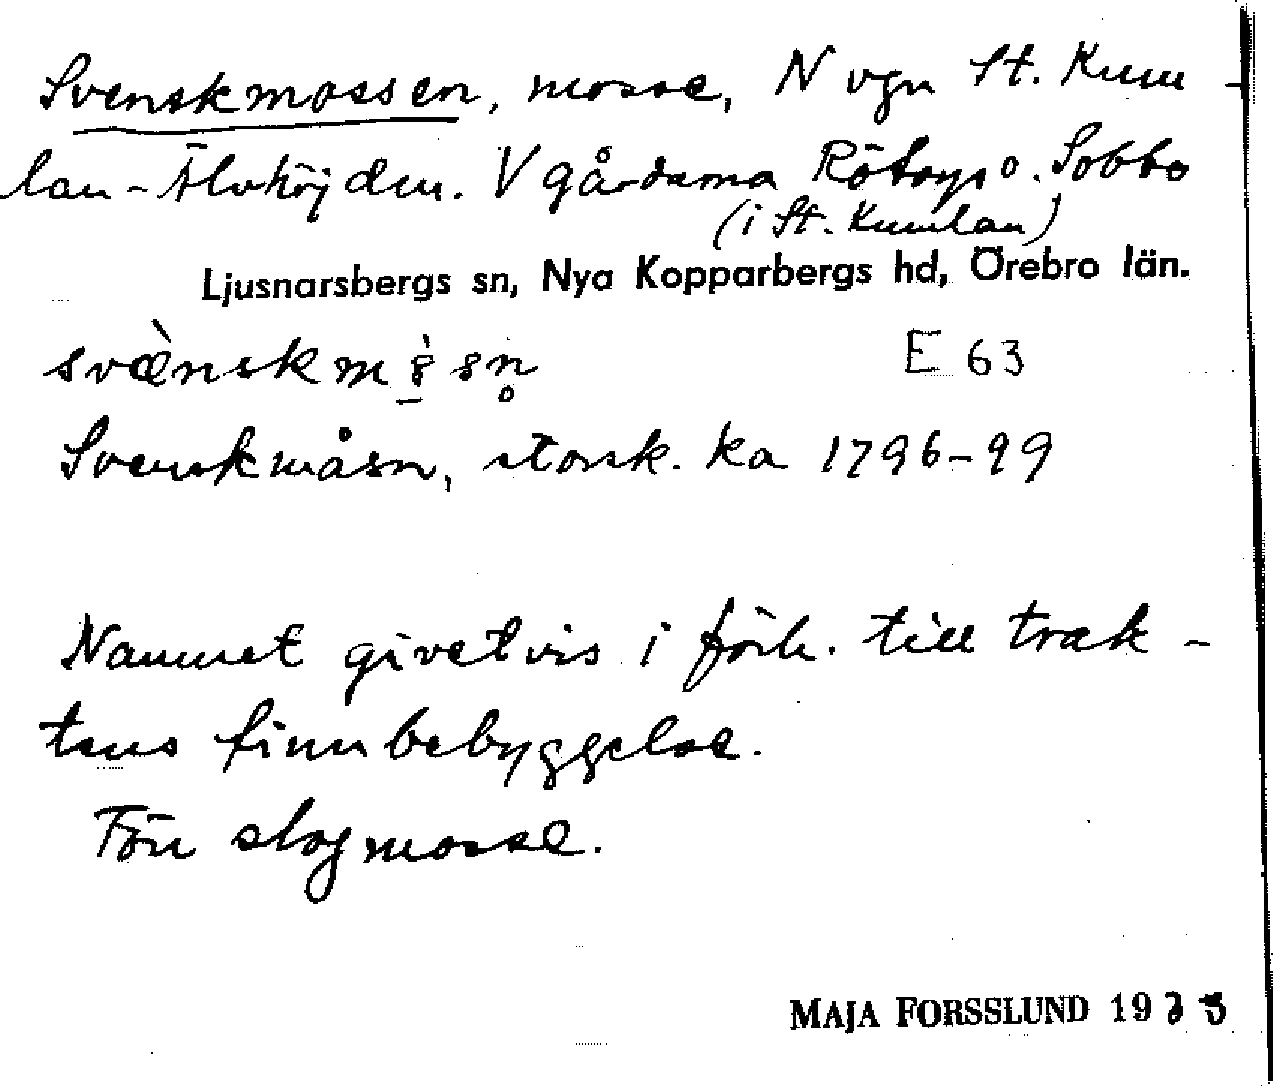 Svenskmossen, mosse, N vgn St. Kum-
lan-Älvhöjden. V gårdarna Rötorp o. Sobbo
(i St. Kumlan)
Ljusnarsbergs sn, Nya Kopparbergs hd, Örebro län.
E 63
Svenskmåsn, storsk. ka 1796-99
Namnet givetvis i förh. till trak-
tens finnbebyggelse.
Förr slogmosse.
MAJA FORSSLUND 19